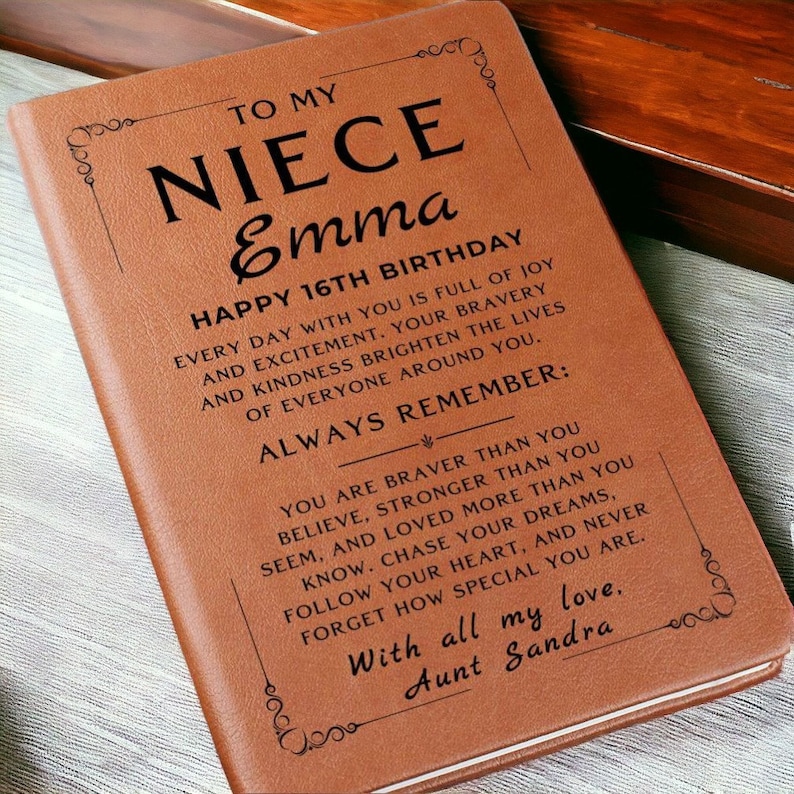 TO MY
NIECE
Emma
HAPPY 16TH BIRTHDAY
EVERY DAY WITH YOU IS FULL OF JOY
AND EXCITEMENT. YOUR BRAVERY
AND KINDNESS BRIGHTEN THE LIVES
OF EVERYONE AROUND YOU.
ALWAYS REMEMBER:
YOU ARE BRAVER THAN YOU
BELIEVE, STRONGER THAN YOU
SEEM, AND LOVED MORE THAN YOU
KNOW. CHASE YOUR DREAMS,
FOLLOW YOUR HEART, AND NEVER
FORGET HOW SPECIAL YOU ARE.
With all my love,
Aunt Sandra